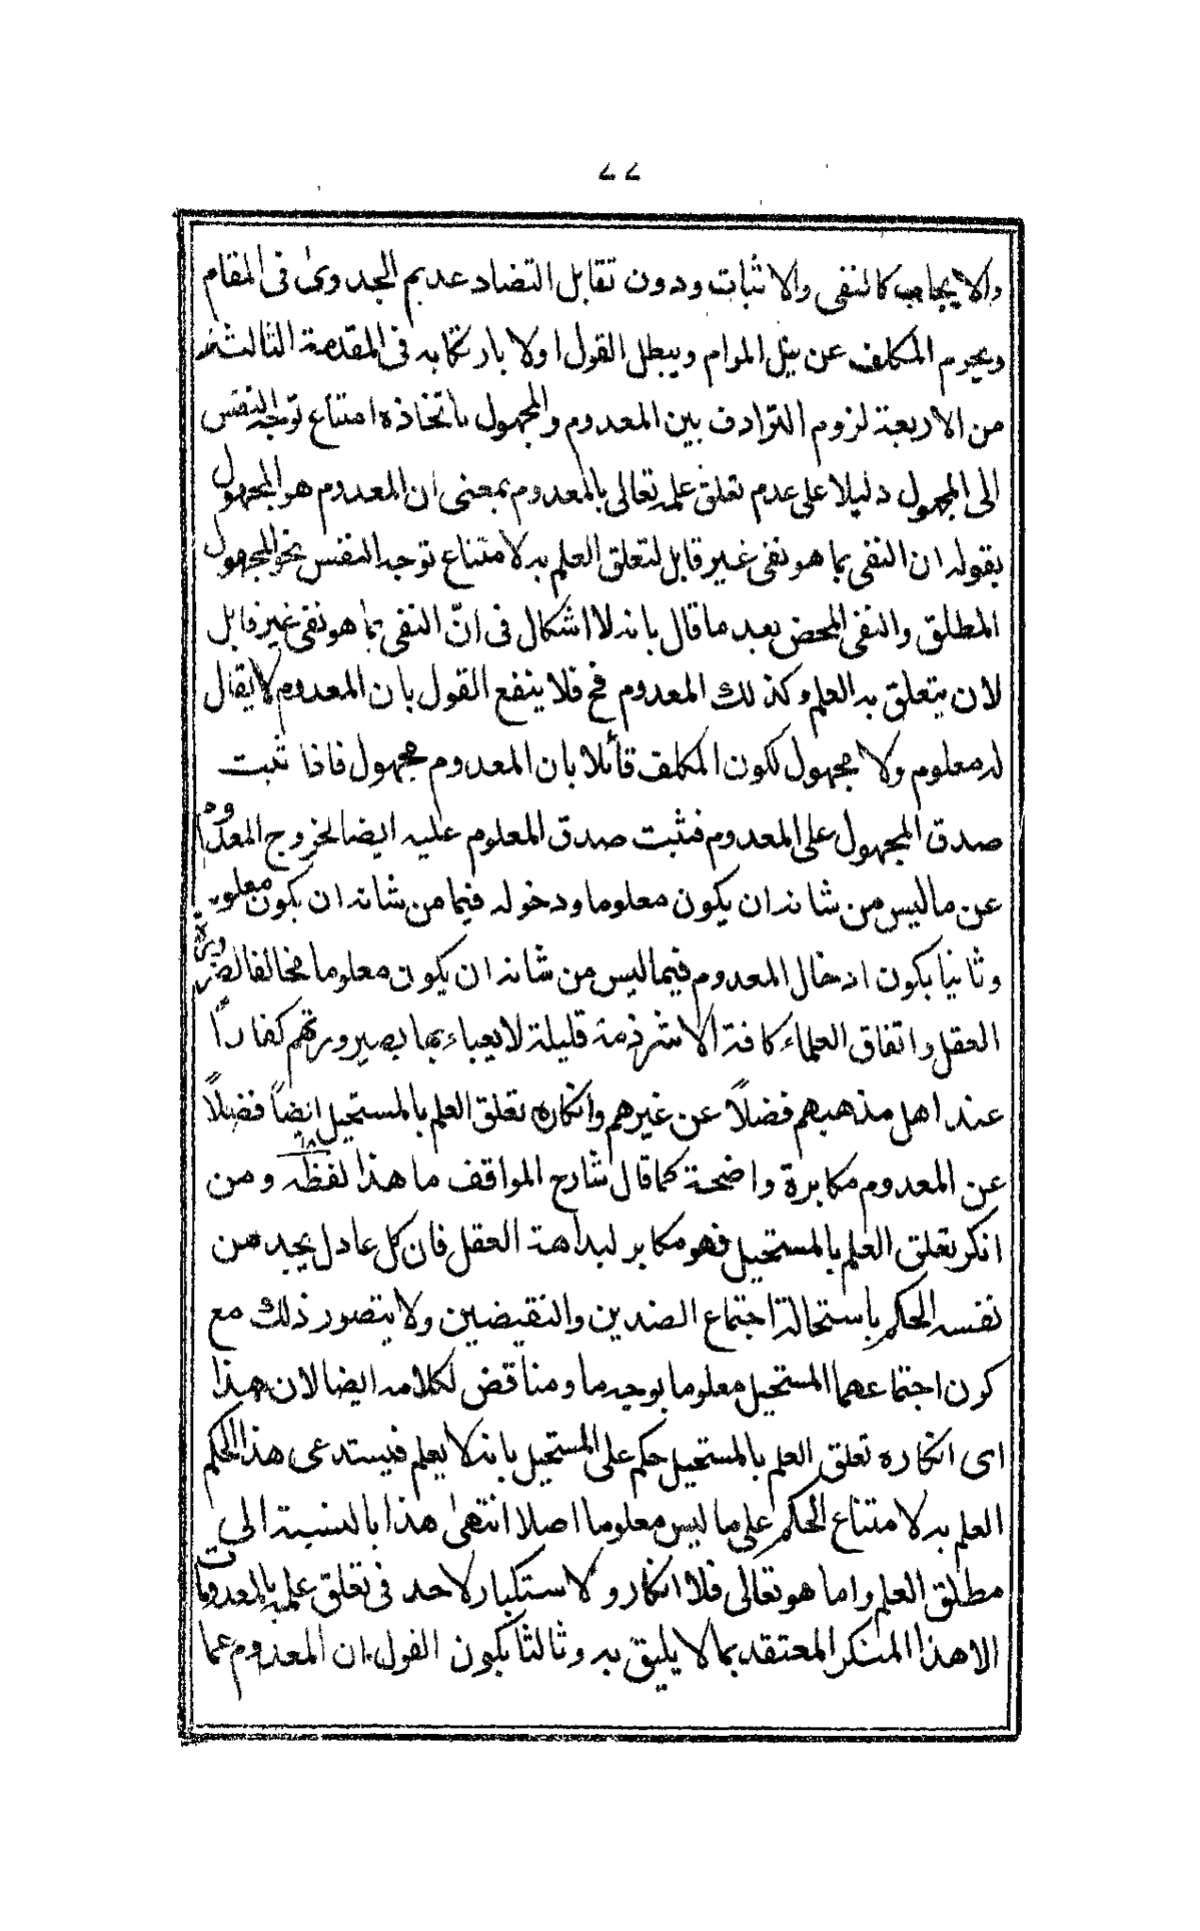 ٤٤
والايجاب كالنفى والاثبات ودون تقابل التضاد عديم الجدوى فى المقام
ويحوم المكلف عن نيل المرام ويبطل القول اولا بارتكابه فى المقدمة الثالثة
من الاربعة لزوم الترادف بين المعدوم والمجهول باتخاذه امتناع توجه النفس
الى المجهول دليلا على عدم تعلق علمه تعالى بالمعدوم بمعنى ان المعدوم هو المجهول
بقوله ان النفى بما هو نفى غير قابل لتعلق العلم به لامتناع توجه النفس نحو المجهول
المطلق والنفى المحض بعد ما قال بانه لا اشكال فى انّ النفى بما هو نفى غير قابل
لان يتعلق به العلم وكذلك المعدوم فح فلا ينفع القول بان المعدوم لا يقال
له معلوم ولا مجهول لكون المكلف قائلا بان المعدوم مجهول فاذا ثبت
صدق المجهول على المعدوم فثبت صدق المعلوم عليه ايضا لخروج المعدوم
عن ما ليس من شانه ان يكون معلوما ودخوله فيما من شانه ان يكون معلوما
وثانيا بكون ادخال المعدوم فيما ليس من شانه ان يكون معلوما مخالفا لضرورة
العقل واتفاق العلماء كافة الا شرذمة قليلة لا يعباء بها بصيرورتهم كفاراً
عند اهل مذهبهم فضلاً عن غيرهم وانكاره تعلق العلم بالمستحيل ايضاً فضلاً
عن المعدوم مكابرة واضحة كما قال شارح المواقف ما هذا لفظه ومن
انكر تعلق العلم بالمستحيل فهو مكابر لبداهة العقل فان كل عادل يجد من
نفسه الحكم باستحالة اجتماع الضدين والنقيضين ولا يتصور ذلك مع
كون اجتماعهما المستحيل معلوما بوجه ما ومناقض لكلامه ايضا لان هذا
اى انكاره تعلق العلم بالمستحيل حكم على المستحيل بانه لا يعلم فيستدعى هذا الحكم
العلم به لامتناع الحكم على ما ليس معلوما اصلا انتهى هذا بالنسبة الى
مطلق العلم واما هو تعالى فلا انكار ولا ستكبار لاحد فى تعلق علمه بالمعدومات
الا هذا المنكر المعتقد بما لا يليق به وثالثا بكون القول بان المعدوم عما